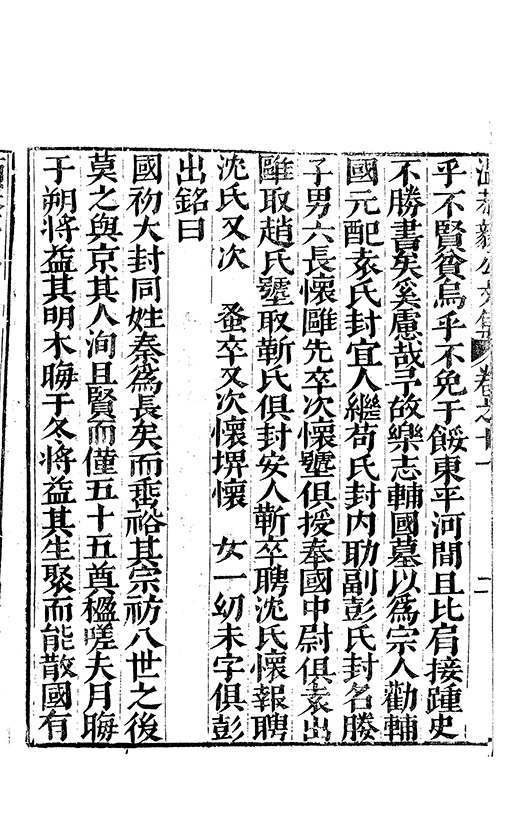 溫恭毅公文集 卷之十一 二
乎不賢貧烏乎不免于餒東平河間且比肩接踵史
不勝書矣奚慮哉予故樂志輔國墓以為宗人勸輔
國元配袁氏封宜人繼苟氏封內助副彭氏封名勝
子男六長懷雕先卒次懷墾俱授奉國中尉俱袁出
雕取趙氏墾取靳氏俱封安人靳卒聘沈氏懷報聘
沈氏又次 蚤卒又次懷堺懷 女一幼未字俱彭
出銘曰
國初大封同姓秦爲長矣而垂裕其宗祊八世之後
莫之與京其人洵且賢而僅五十五奠楹嗟夫月晦
于朔將益其明木晦于冬將益其生聚而能散國有